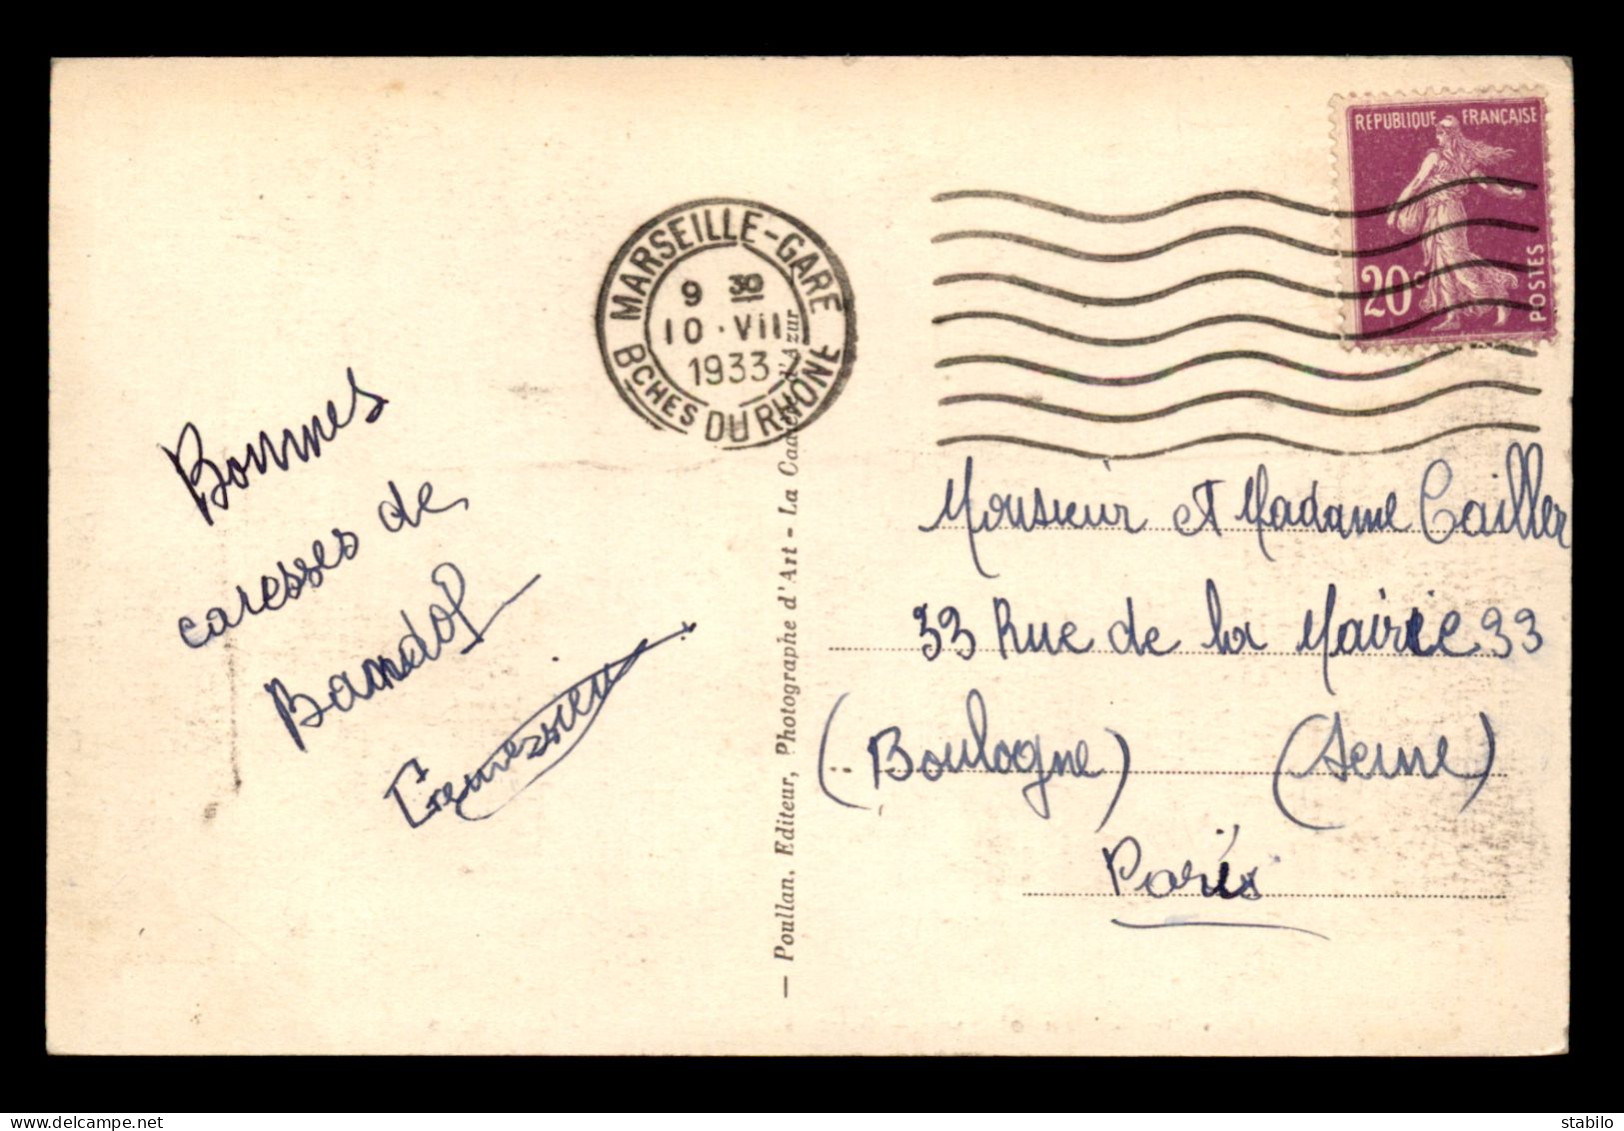 REPUBLIQUE FRANÇAISE
20c
POSTES
MARSEILLE-GARE
9 30
10 · VII
1933
BCHES DU RHONE
Bonnes
caresses de
Bandol
— Poullan, Editeur, Photographe d'Art - La Cad d'Azur
Monsieur et Madame Cailler
33 Rue de la Mairie 33
(Boulogne) (Seine)
Paris
delcampe.net
stabilo